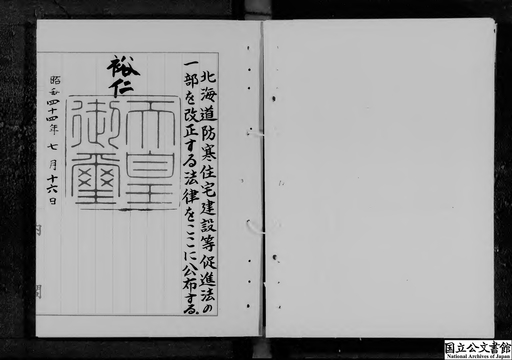 北海道防寒住宅建設等促進法の
一部を改正する法律をここに公布する。
裕仁
天皇
御璽
昭和四十四年七月十六日
内
閣
国立公文書館
National Archives of Japan